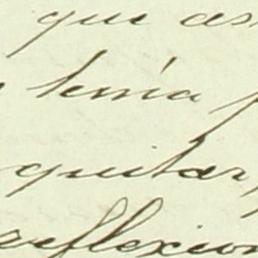 que as
tenía
quitar,
reflexion